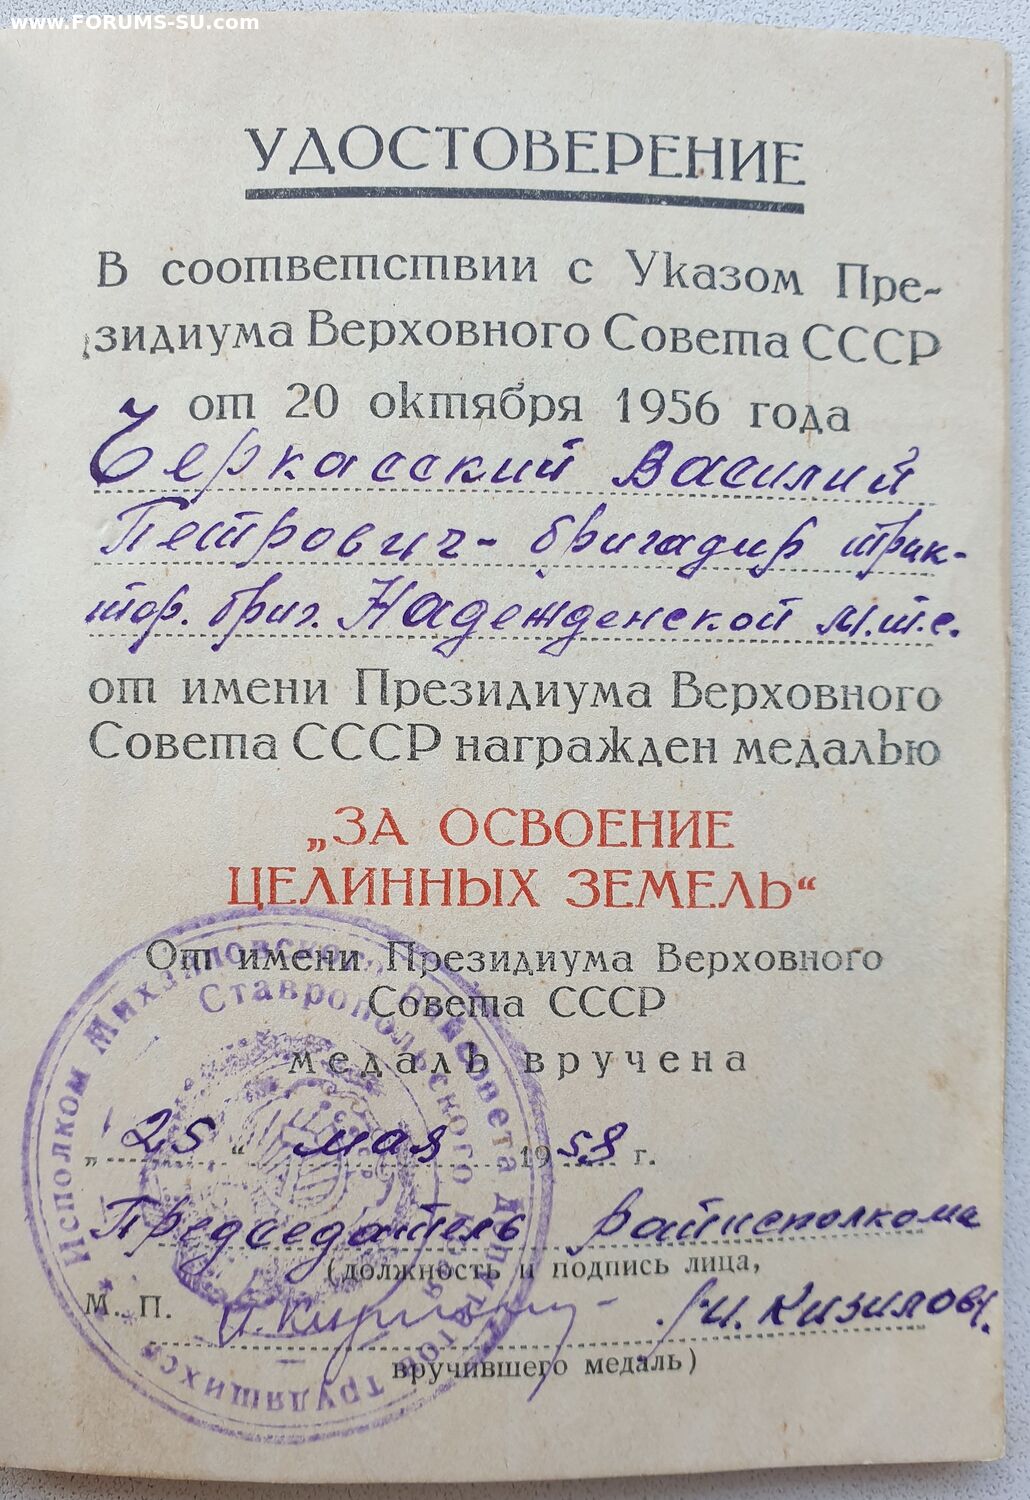 www.FORUMS-SU.com
УДОСТОВЕРЕНИЕ
В соответствии с Указом Пре-
зидиума Верховного Совета СССР
от 20 октября 1956 года
Черкасский Василий
Петрович - бригадир трак-
тор. бриг. Надежденской М.т.с.
от имени Президиума Верховного
Совета СССР награжден медалью
„ЗА ОСВОЕНИЕ
ЦЕЛИННЫХ ЗЕМЕЛЬ“
От имени Президиума Верховного
Совета СССР
медаль вручена
„25“ мая 1958 г.
Председатель Райисполкома
(должность и подпись лица,
М. П. /И. Кизилов/.
вручившего медаль)
Исполком Михайловского райсовета депутатов трудящихся
Ставропольского края